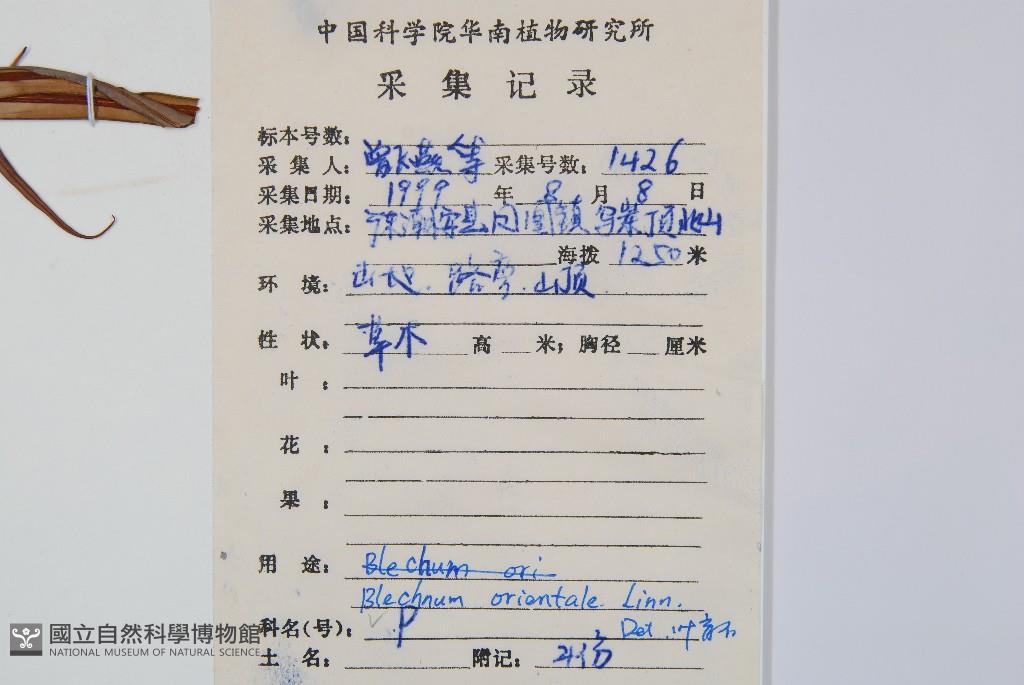 中国科学院华南植物研究所
采集记录
标本号数：
采集人：曾飞燕等 采集号数：1426
采集日期：1999年8月8日
采集地点：潮安县凤凰镇乌岽顶
海拨1250米
环境：山地．路旁．山顶
性状：草本 高 米；胸径 厘米
叶：
花：
果：
用途：Blechum ori
Blechnum orientale Linn.
科名(号)：P Det.
土名： 附记：4份
國立自然科學博物館
NATIONAL MUSEUM OF NATURAL SCIENCE